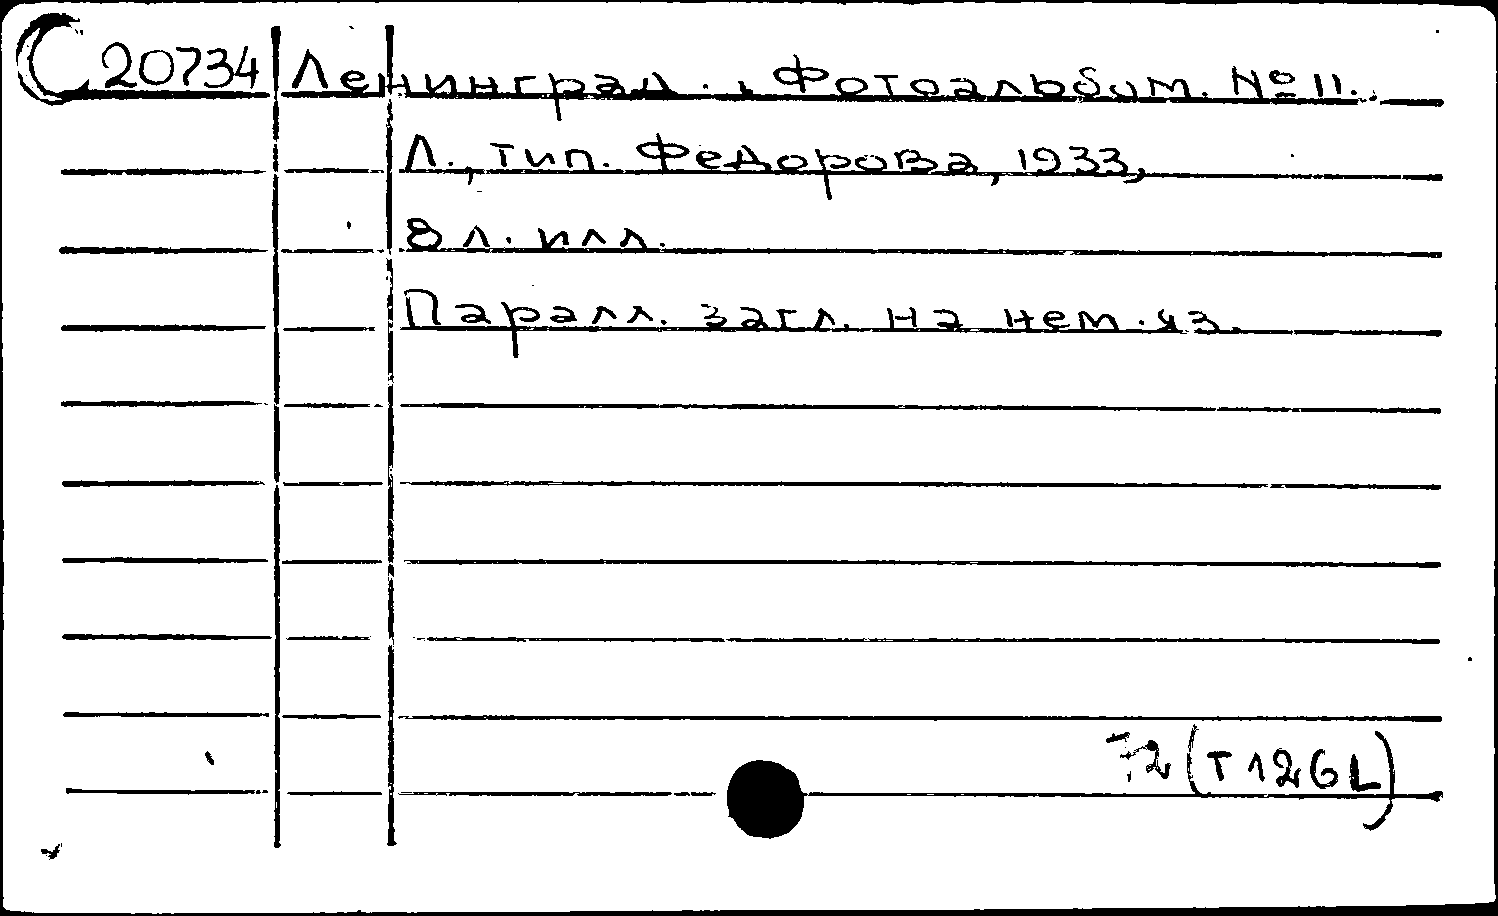 20734 Ленинград. Фотоальбом. № 11.
Л., тип. Федорова, 1933,
8 л. илл.
Паралл. загл. на нем. яз.
72 (T126L)